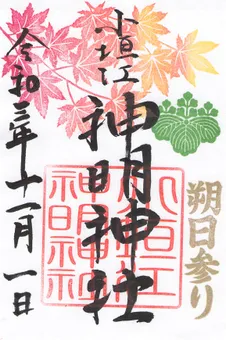 小垣江
神明神社
朔日参り
令和三年十一月一日
小垣江
神明神社